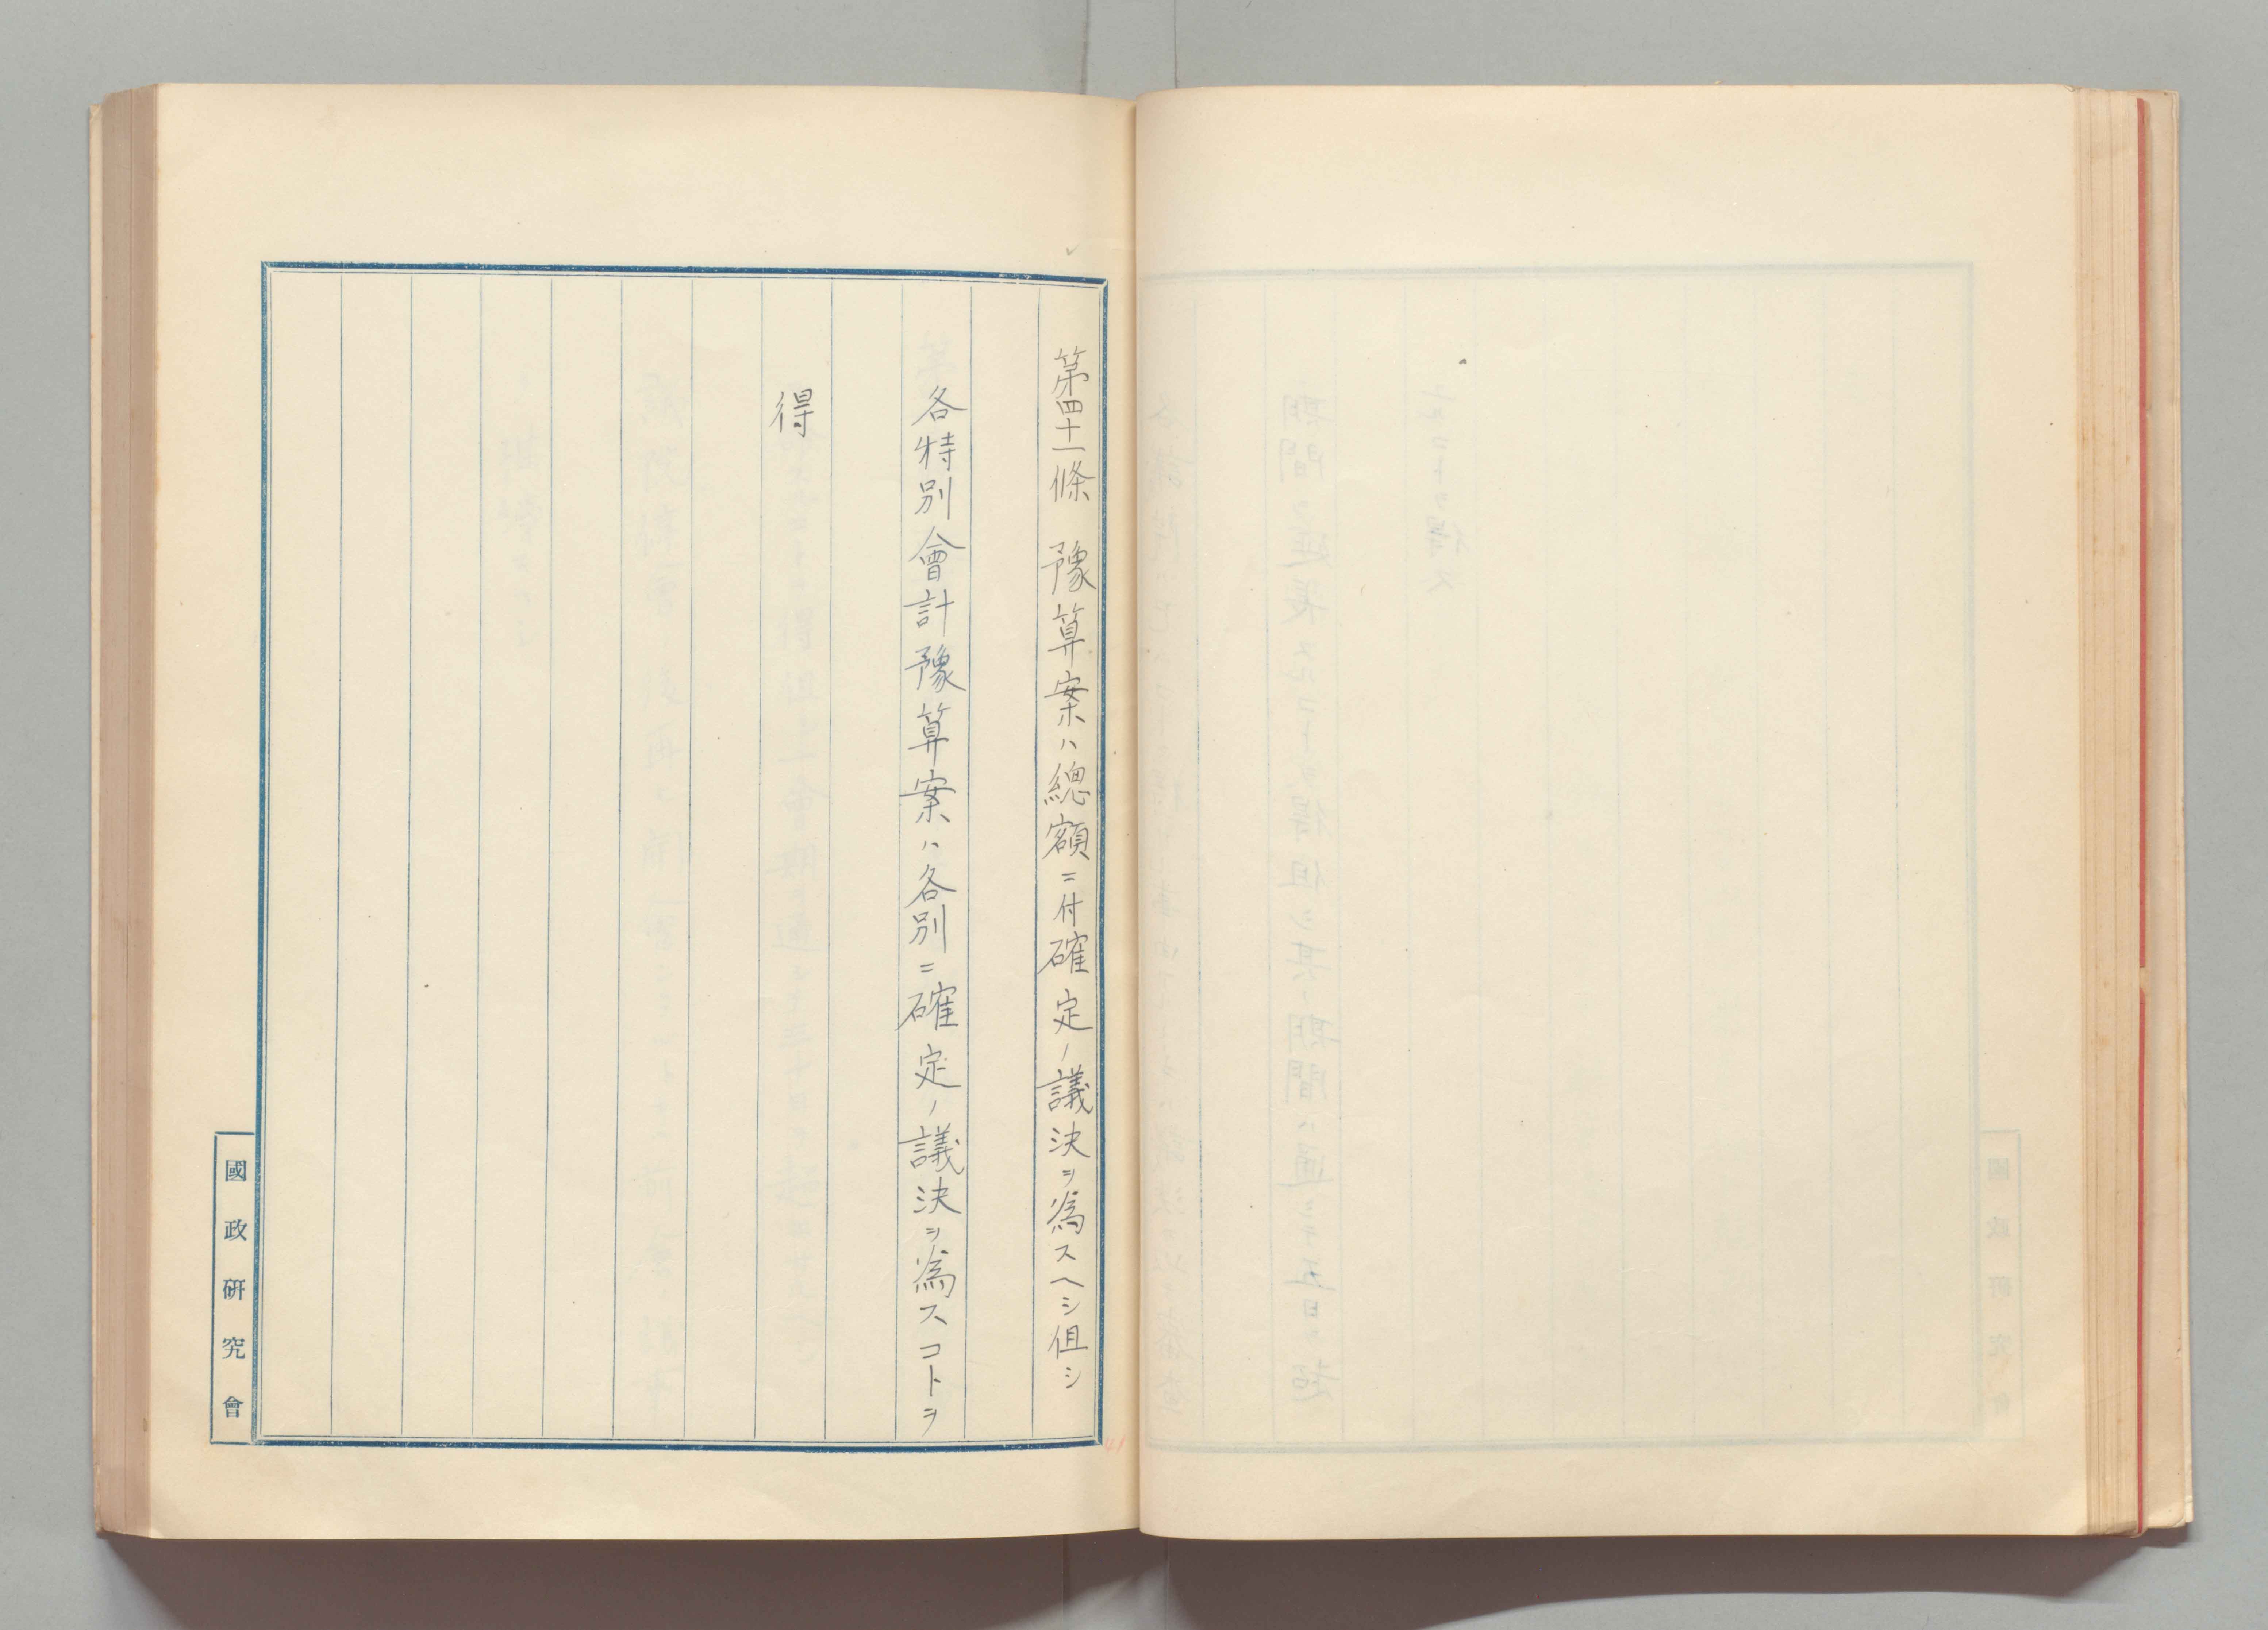 第四十一條　豫算案ハ總額ニ付確定ノ議決ヲ爲スヘシ但シ
各特別會計豫算案ハ各別ニ確定ノ議決ヲ爲スコトヲ
得
國政研究會
41